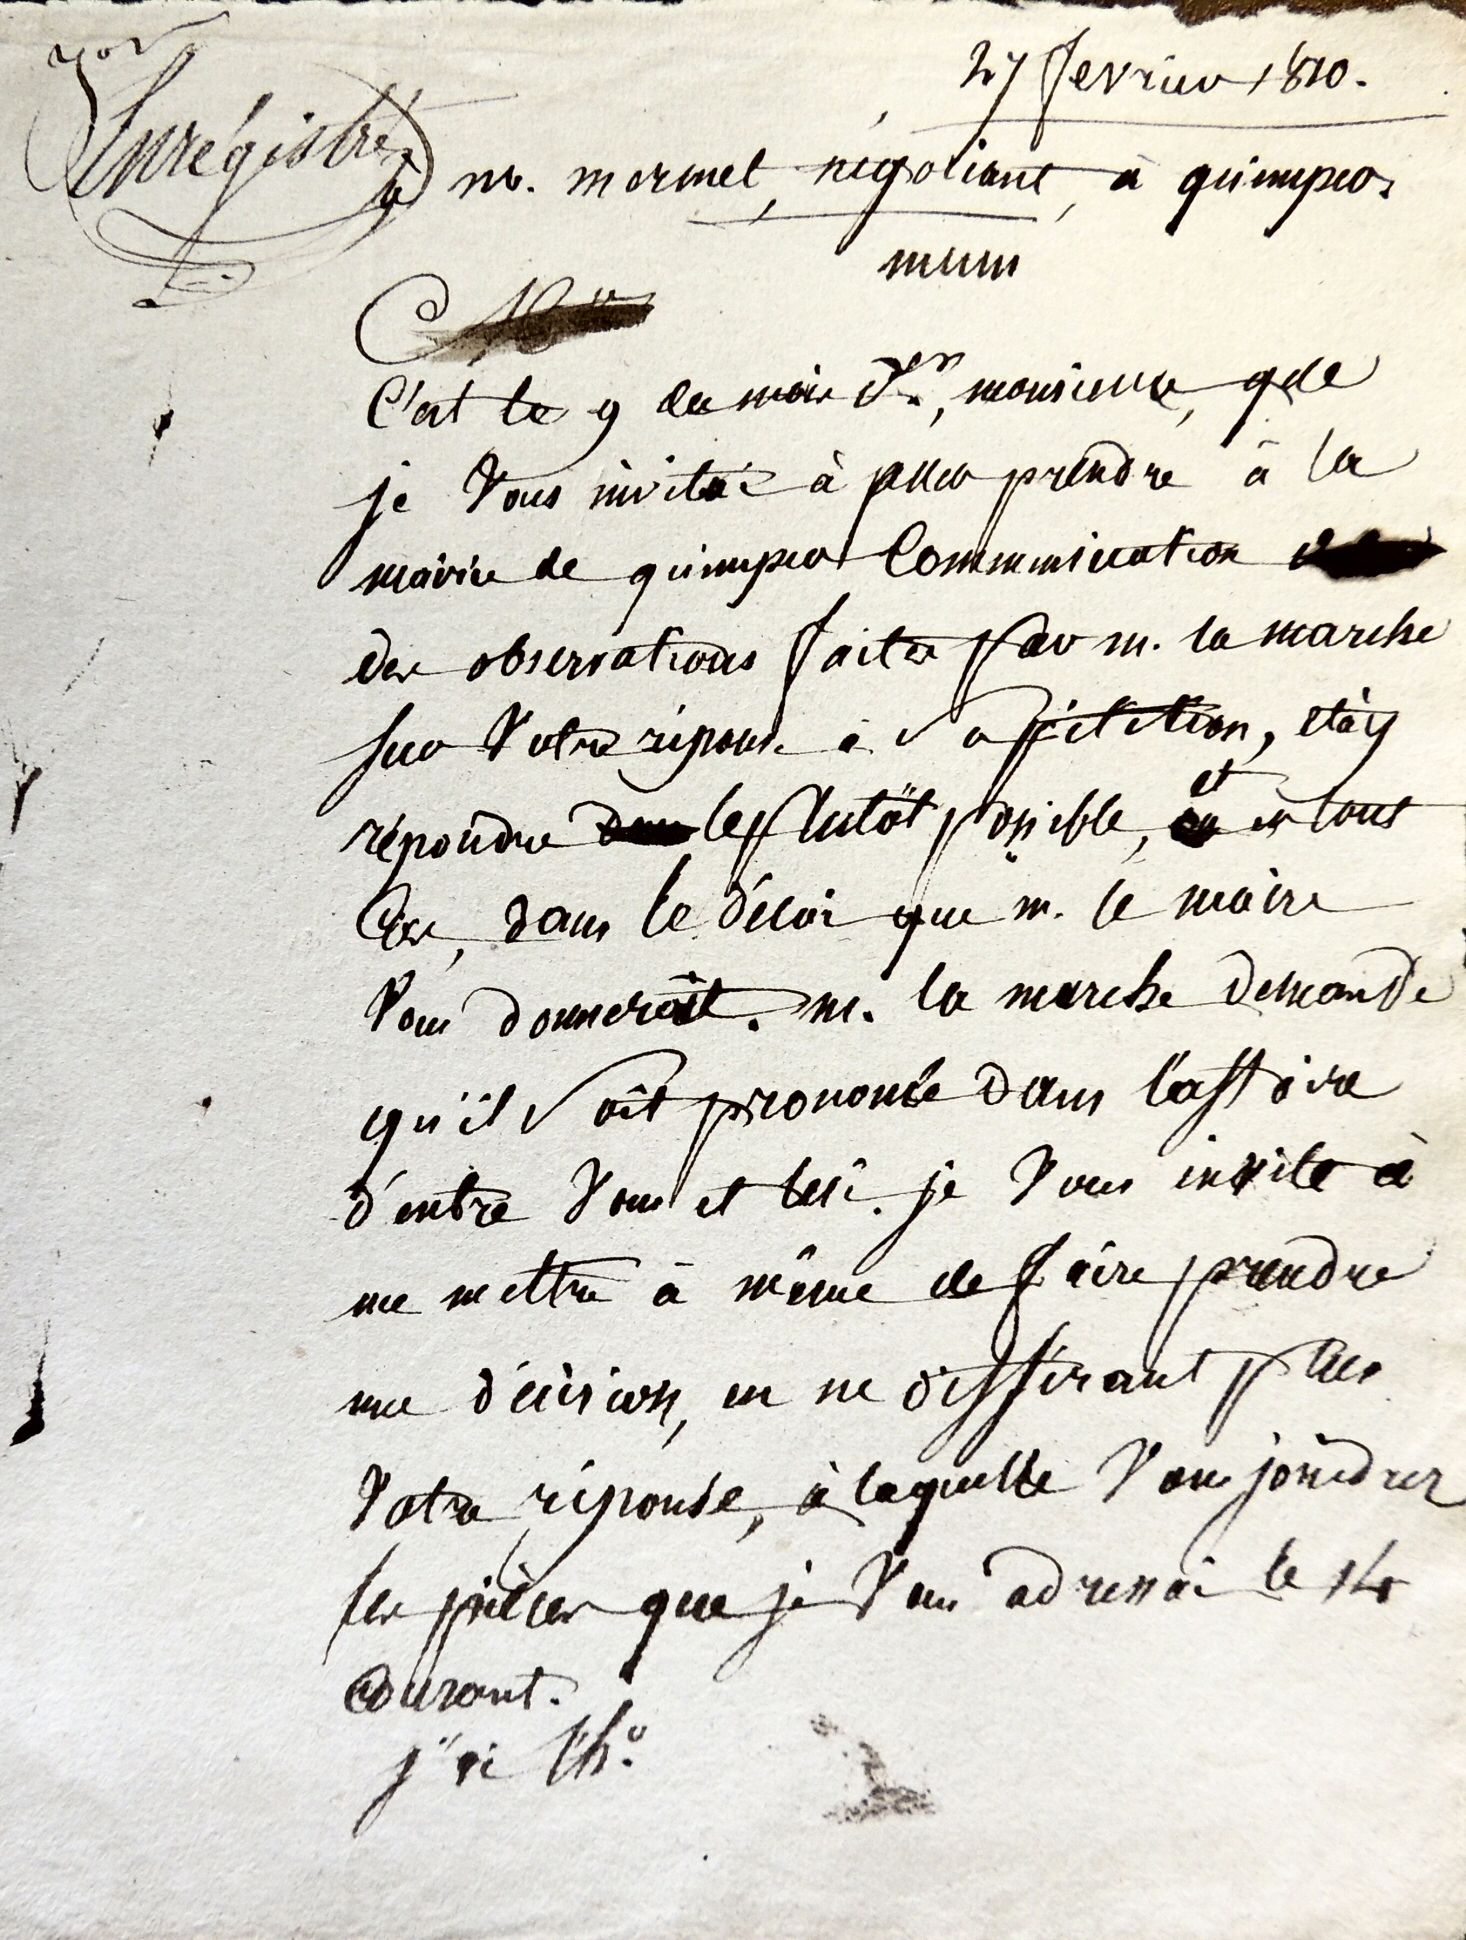 27 fevrier 1810.
Enrégistré
à mr. mermet, négotiant, à quimper.
C'est le 9 du mois dr., monsieur, que
je vous invitai à aller prendre à la
mairie de quimper communication
des observations faites par m. la marche
sur votre réponse à sa pétition, et à y
répondre le plutôt possible, et en tout
cas, dans le délai que m. le maire
vous donneroit. m. la marche demande
qu'il soit prononcé dans l'affaire
d'entre vous et lui. je vous invite à
me mettre à même de faire prendre
une décision, en ne différant plus
votre réponse, à laquelle vous joindrez
les pièces que je vous adressai le 14
courant.
j'ai l'hr.